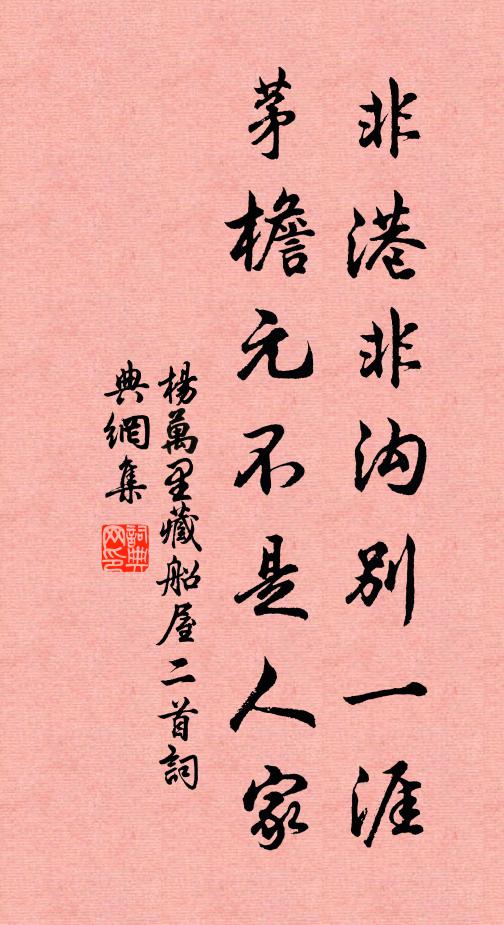 非港非沟别一涯
茅檐元不是人家
楊萬里藏船屋二首詞
典網集
詞典
网印